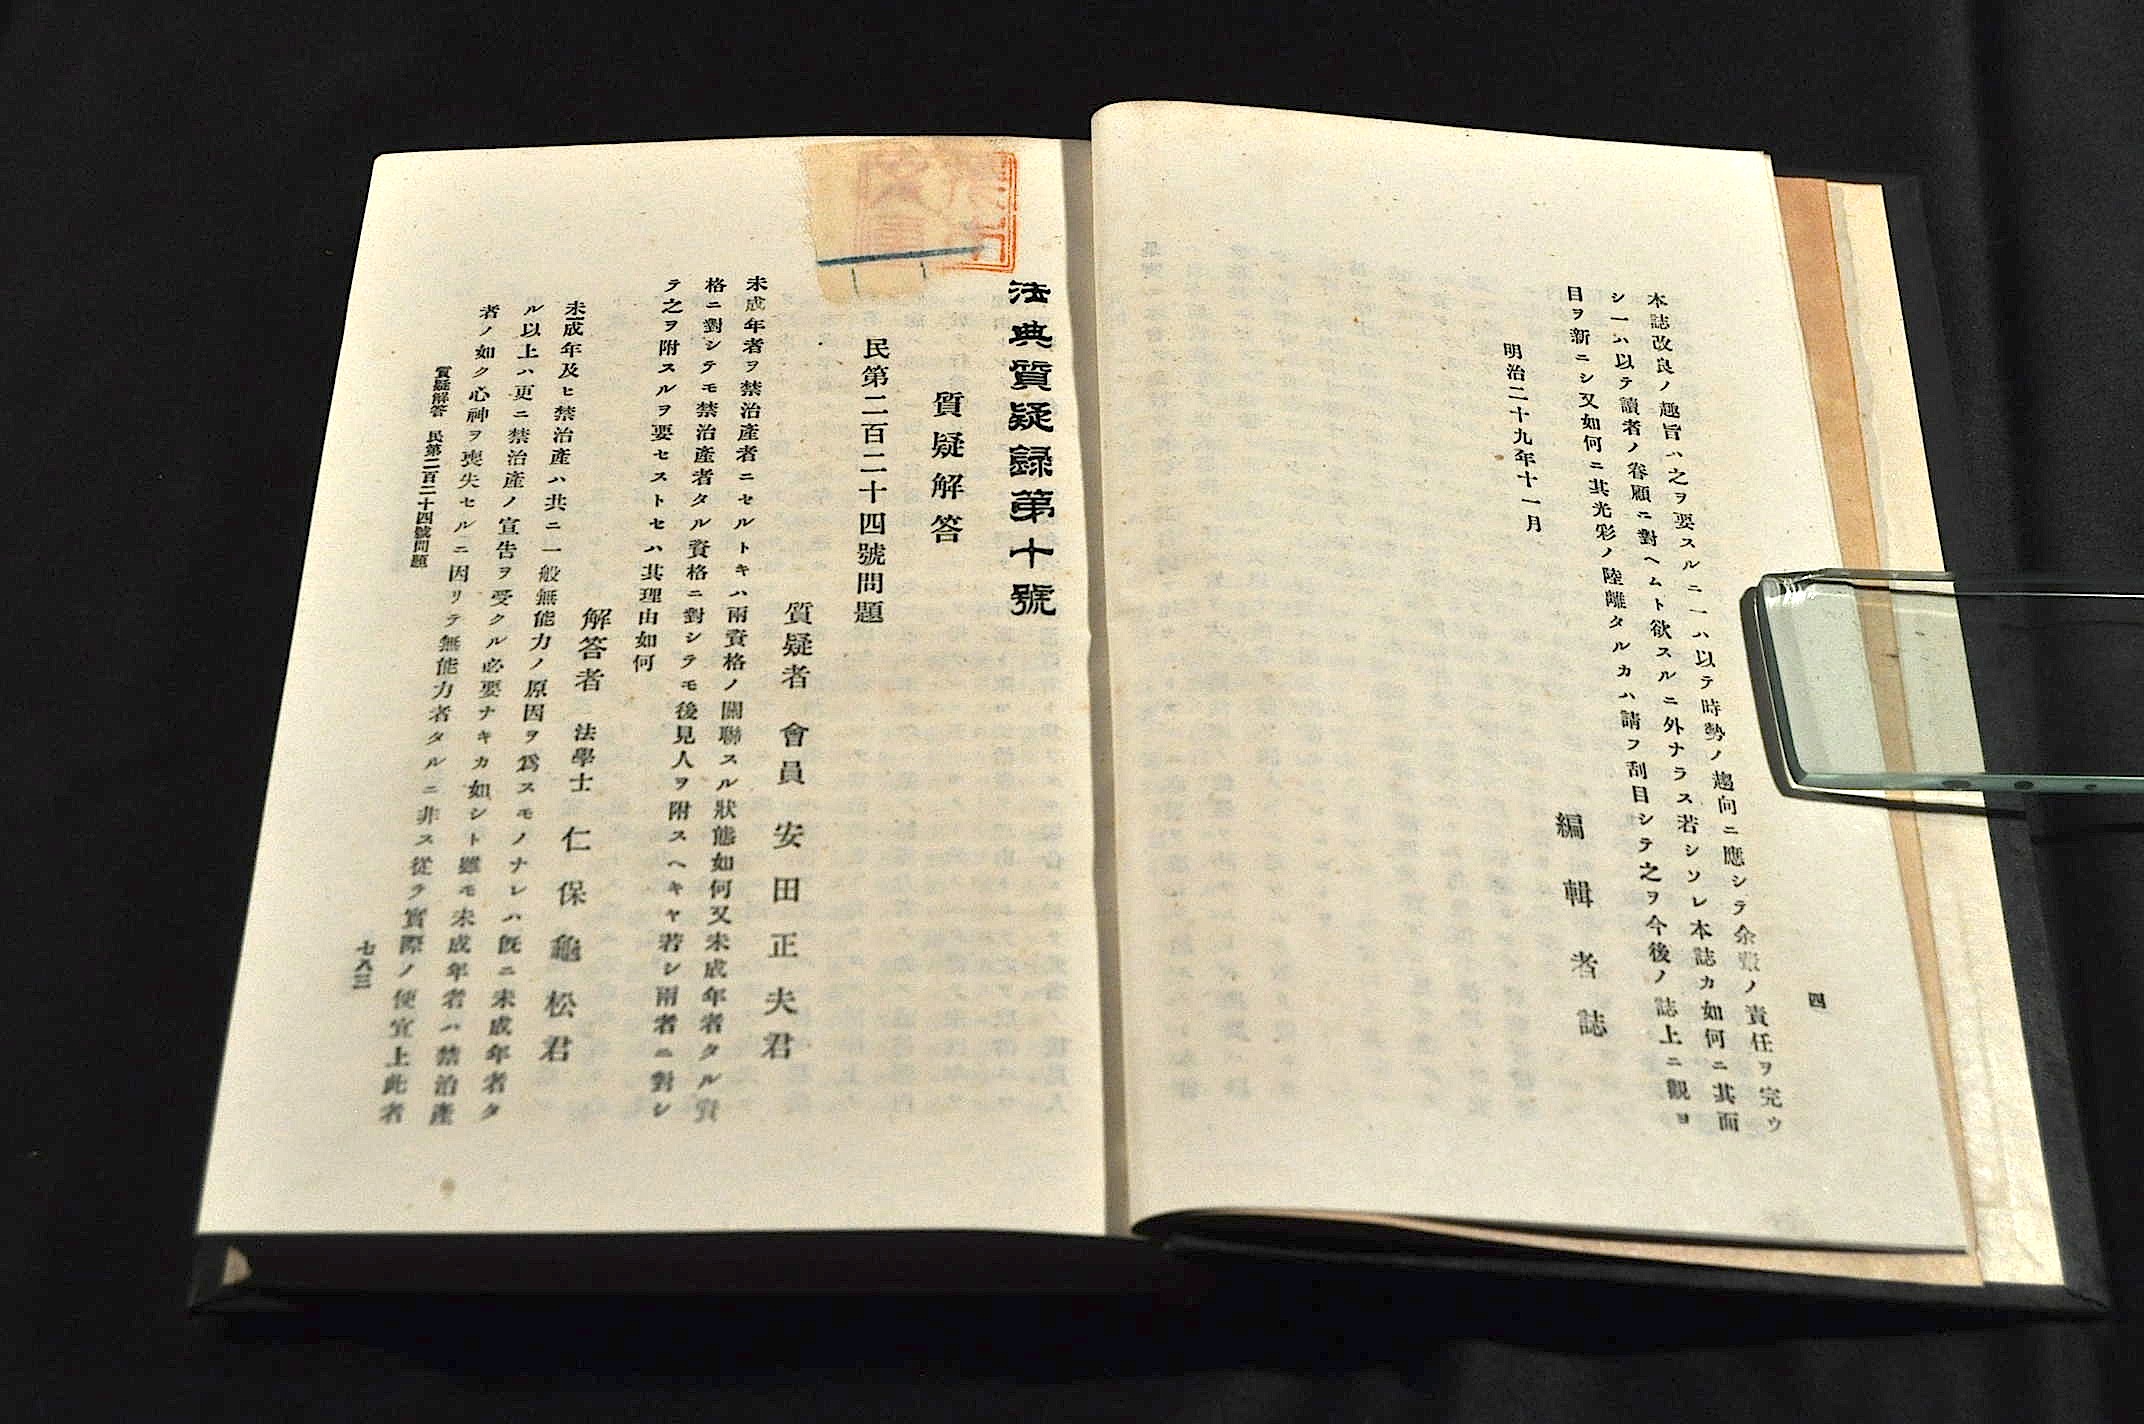 四
本誌改良ノ趣旨ハ之ヲ要スルニ一ハ以テ時勢ノ趨向ニ應シテ余輩ノ責任ヲ完ウ
シ一ハ以テ讀者ノ眷顧ニ對ヘムト欲スルニ外ナラス若シソレ本誌カ如何ニ其面
目ヲ新ニシ又如何ニ其光彩ノ陸離タルカハ請フ刮目シテ之ヲ今後ノ誌上ニ觀ヨ
明治二十九年十一月
編輯者誌
法典質疑録第十號
質疑解答
民第二百二十四號問題
質疑者 會員 安田正夫君
未成年者ヲ禁治產者ニセルトキハ兩資格ノ關聯スル狀態如何又未成年者タル資
格ニ對シテモ禁治產者タル資格ニ對シテモ後見人ヲ附スヘキヤ若シ兩者ニ對シ
テ之ヲ附スルヲ要セストセハ其理由如何
解答者 法學士 仁保龜松君
未成年及ヒ禁治產ハ共ニ一般無能力ノ原因ヲ爲スモノナレハ既ニ未成年者タ
ル以上ハ更ニ禁治產ノ宣告ヲ受クル必要ナキカ如シト雖モ未成年者ハ禁治產
者ノ如ク心神ヲ喪失セルニ因リテ無能力者タルニ非ス從テ實際ノ便宜上此者
質疑解答 民第二百二十四號問題
七八三